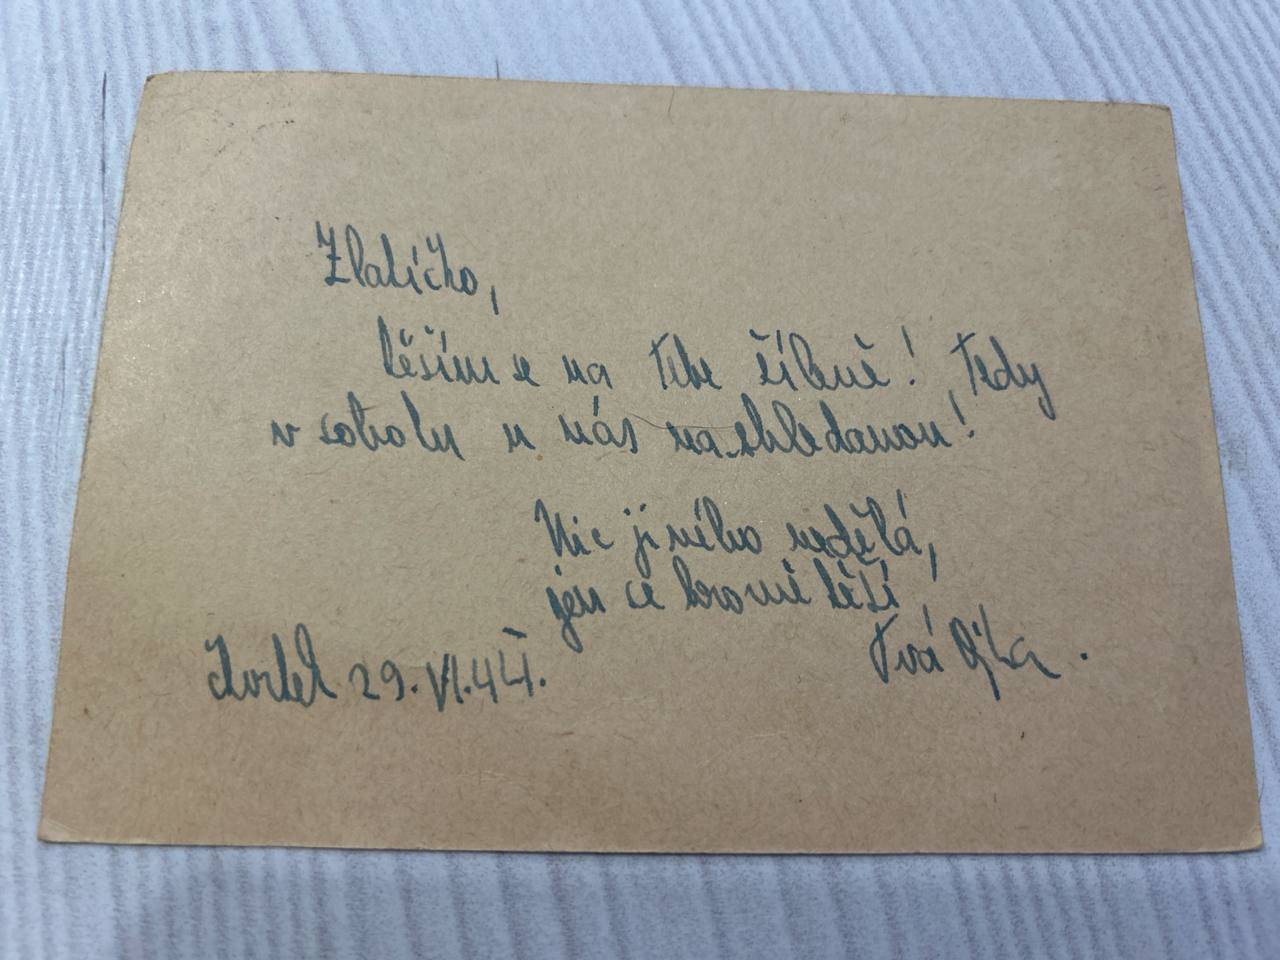 Zlatíčko,
těším se na Tebe šíleně! Tedy
v sobotu u nás na shledanou!
Nic jiného nedělá,
jen se hrozně těší
Tvá
29.VI.44.